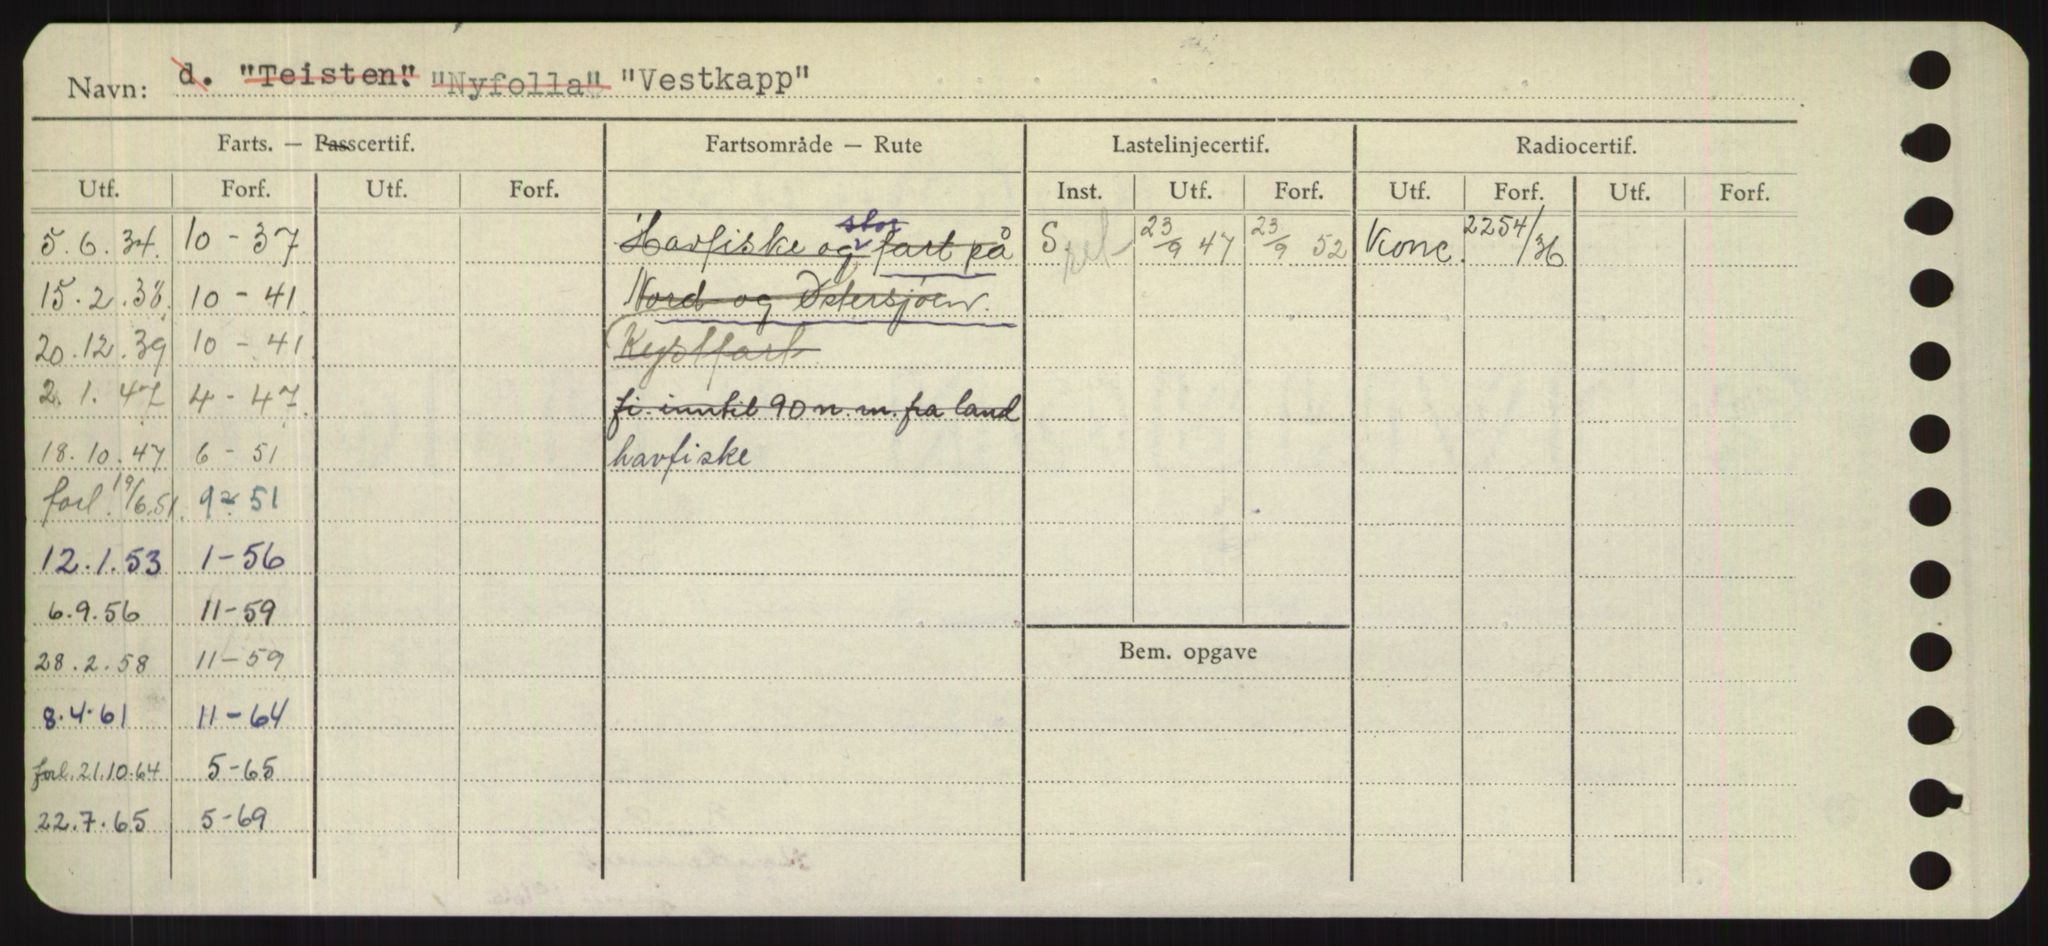 Navn: d. "Teisten". "Nyfolla" "Vestkapp"
Farts. — Passcertif. Fartsområde — Rute Lastelinjecertif. Radiocertif.
Utf. Forf. Utf. Forf. Inst. Utf. Forf. Utf. Forf. Utf. Forf.
stor
5.6.34. 10-37 Havfiske og fart på S 23/9 47 23/9 52 Konc. 2254/36
15.2.38. 10-41 Nord og Østersjøen.
20.12.39 10-41 Kystfart
2.1.47 4-47. fi. inntil 90 n.m. fra land
18.10.47 6-51 havfiske
forl. 19/6.51. 9-51
12.1.53 1-56
6.9.56 11-59
28.2.58 11-59 Bem. opgave
8.4.61 11-64
forl. 21.10.64 5-65
22.7.65 5-69